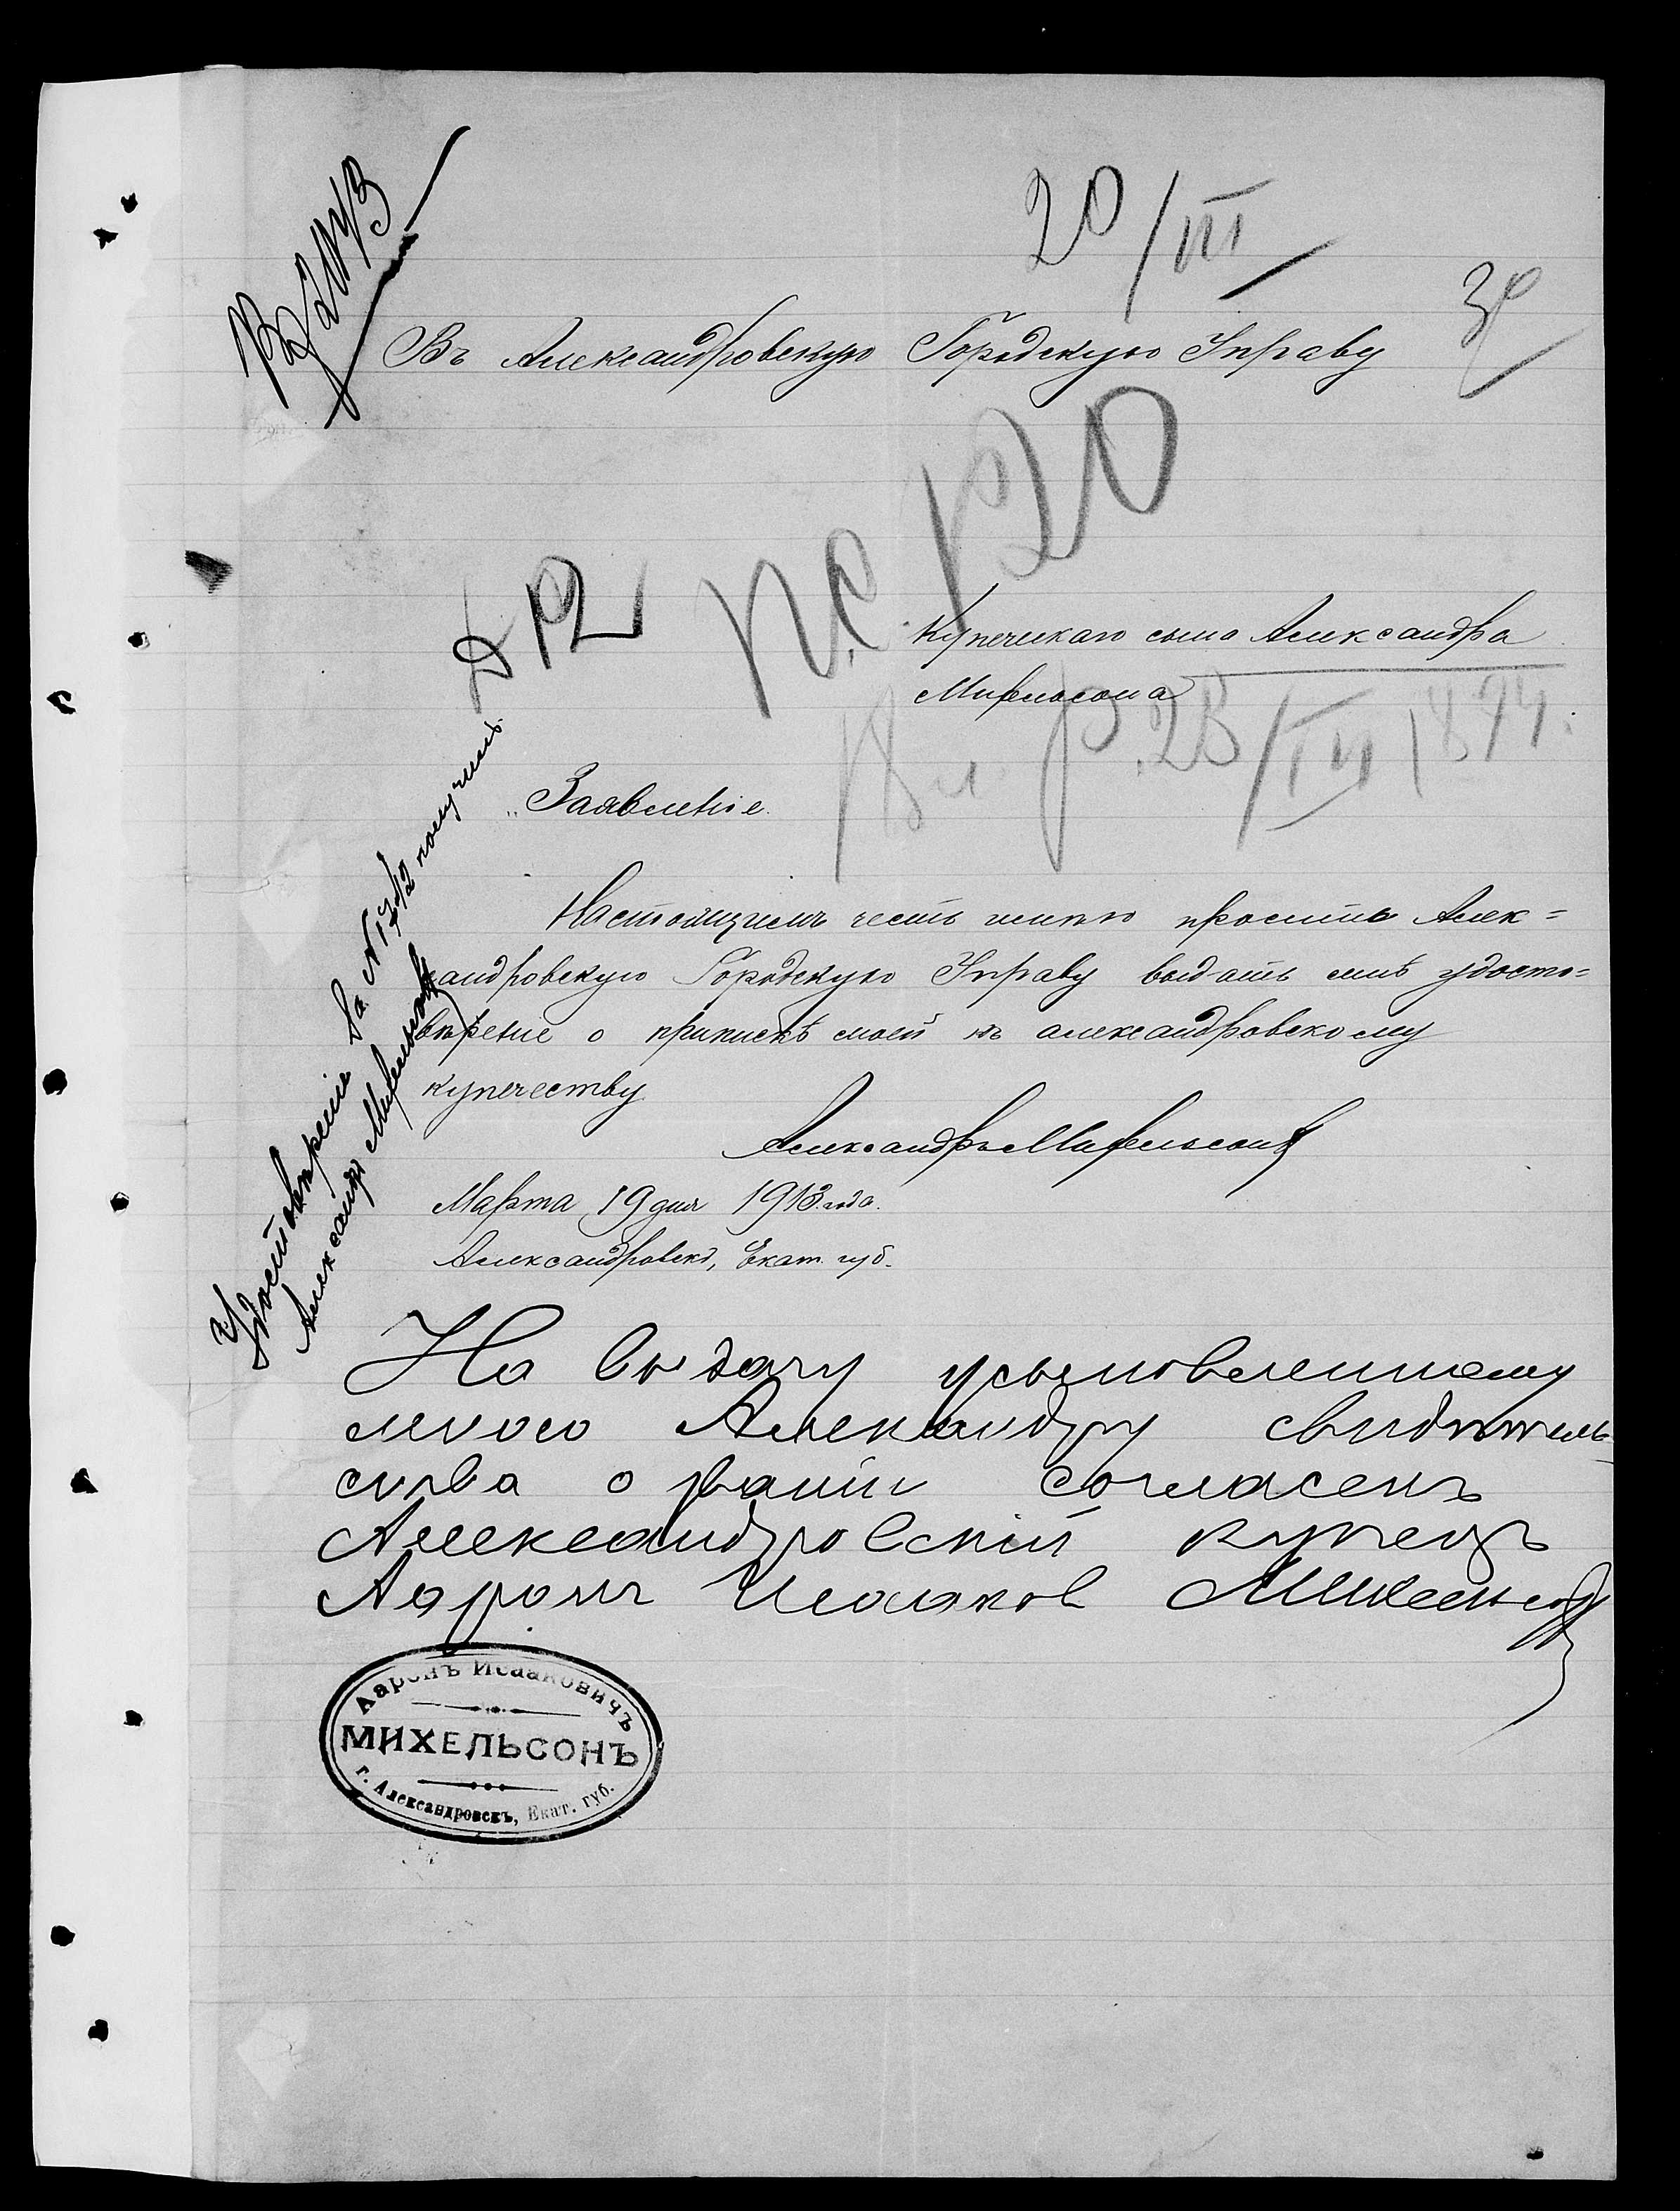 20/III
Въ Александровскую Городскую Управу
№ 120
Купеческаго сына Александра
Михельсона
23/III 1894.
Заявленіе.
Настоящимъ честь имѣю просить Алек=
сандровскую Городскую Управу выдать мнѣ удосто=
вѣреніе о припискѣ моей къ александровскому
купечеству
Александръ Михельсонъ
Марта 19 дня 1913 года.
Александровскъ, Екат. губ.
Удостовѣреніе за № 1242 получилъ
Александръ Михельсонъ
На выдачу усыновленному
мною Александру свидѣтель-
ства о званіи согласенъ
Александровскій купецъ
Ааронъ Исааков Михельсонъ
Ааронъ Исааковичъ
МИХЕЛЬСОНЪ
г. Александровскъ, Екат. губ.